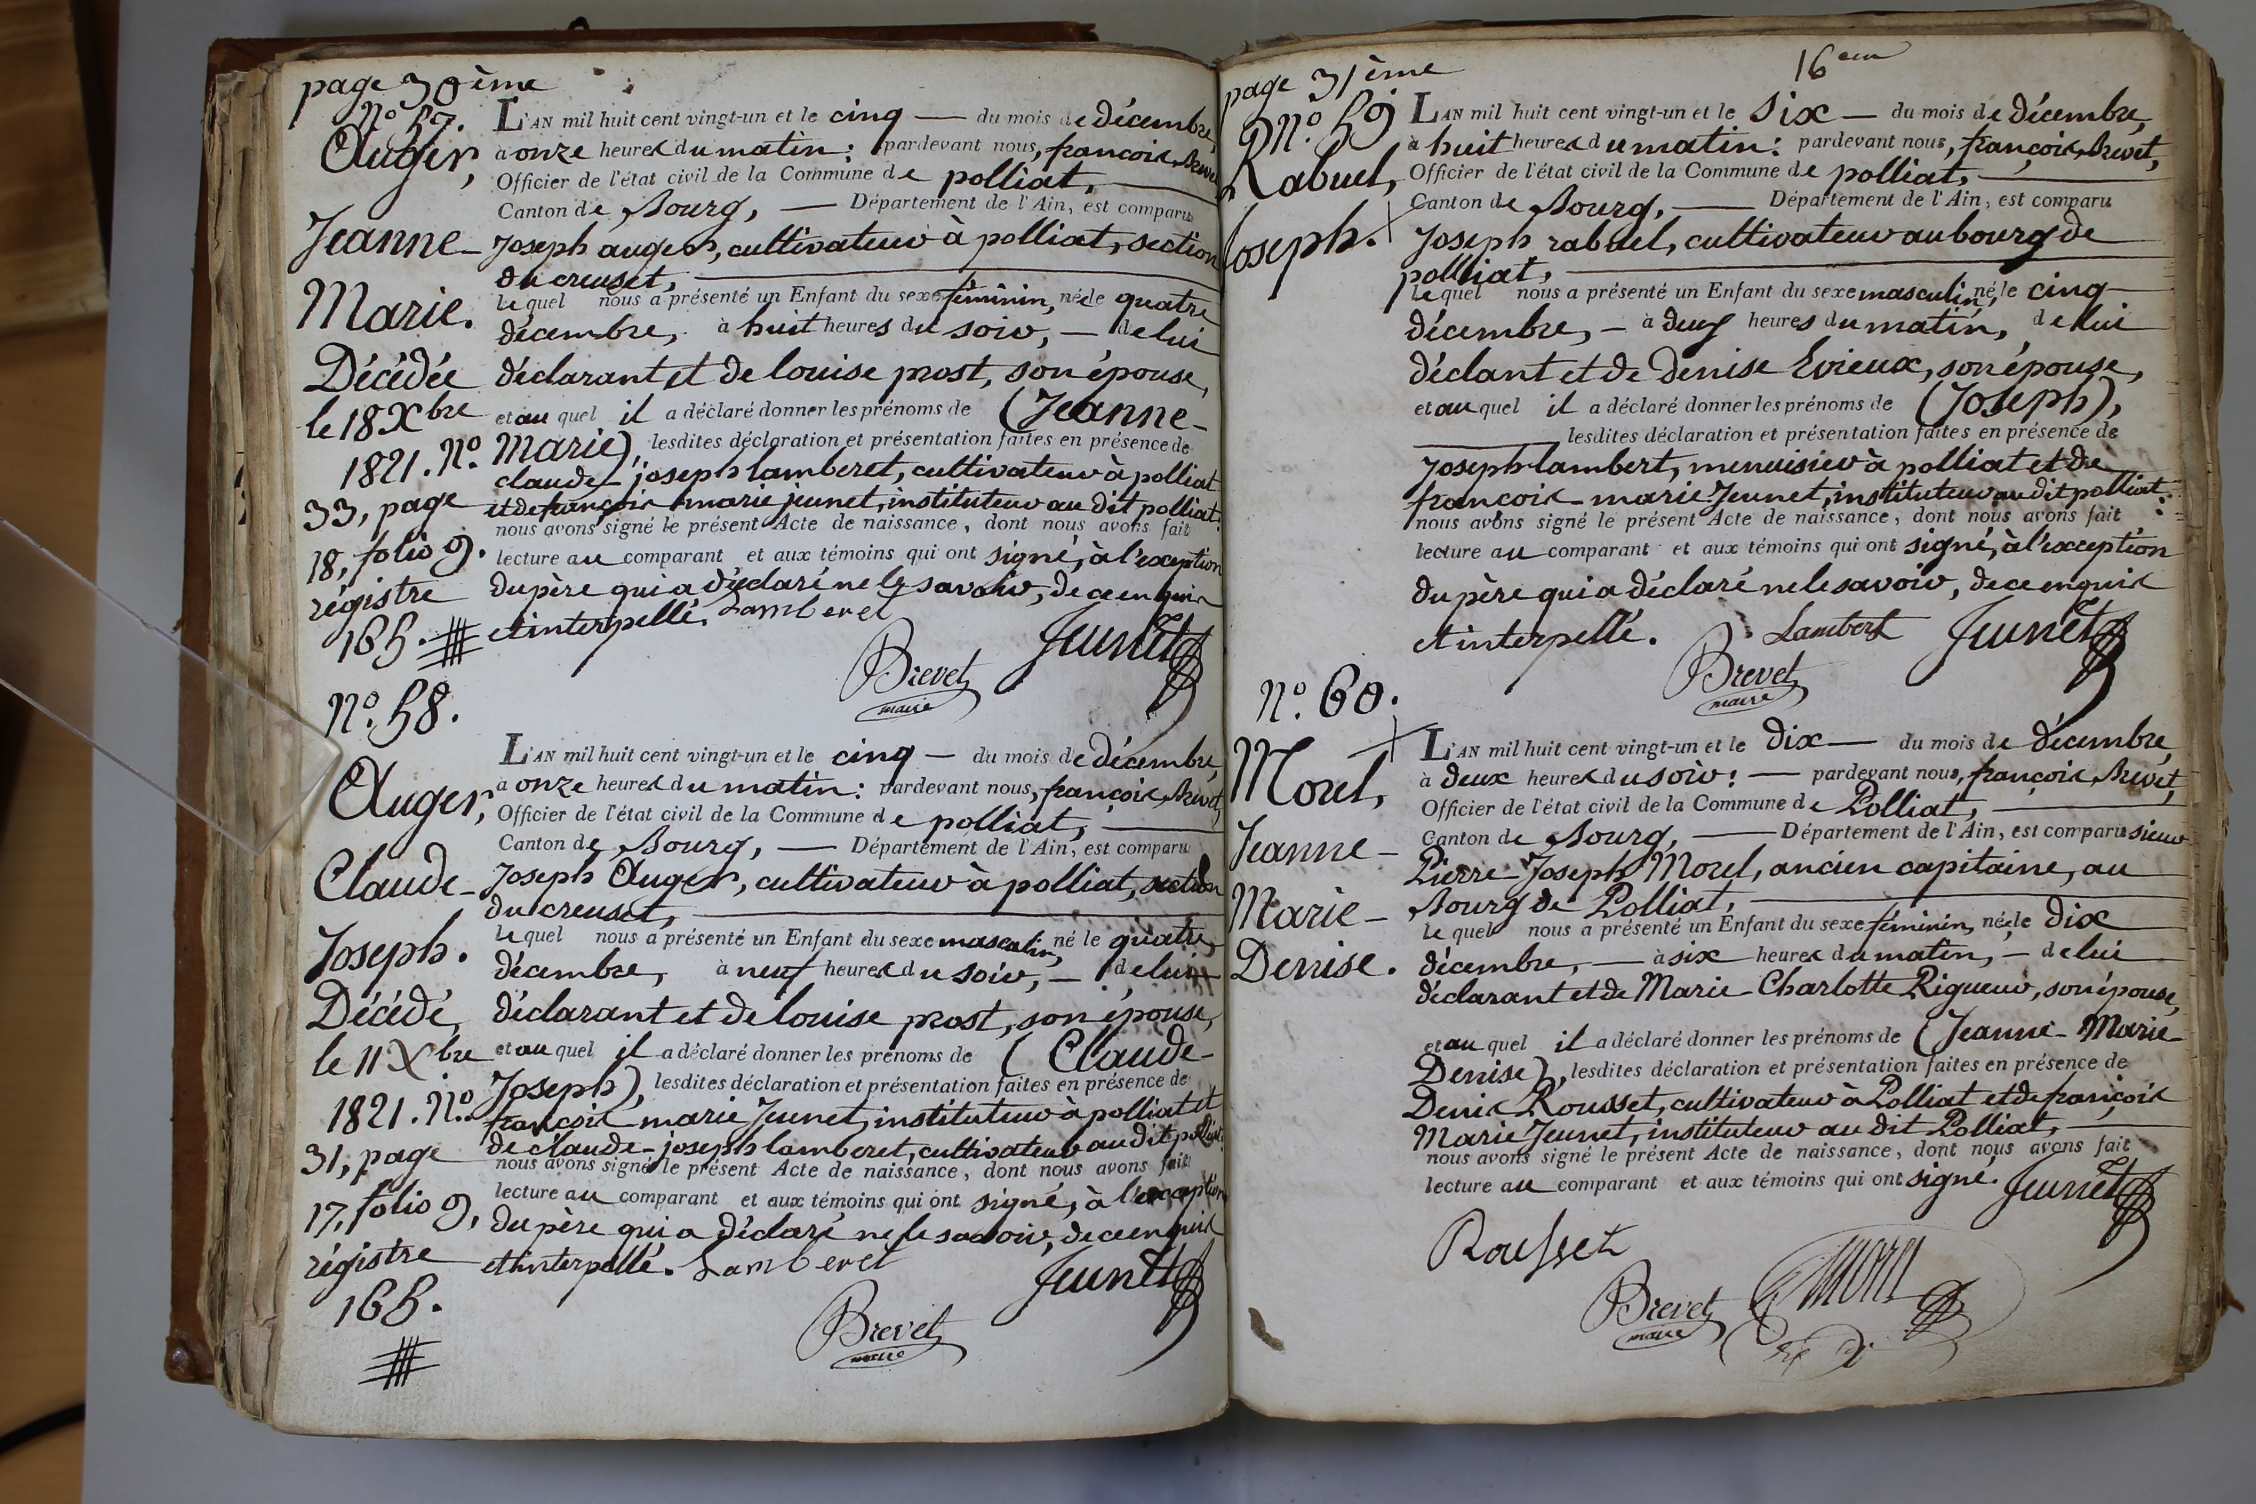 page 30ème
N.o 57.
Auger,
Jeanne-
Marie.
Décédée
le 18 Xbre
1821. N.o
33, page
18, folio 9.
régistre
165.
L'AN mil huit cent vingt-un et le cinq — du mois de décembre,
à onze heures du matin: pardevant nous, françois Brevet,
Officier de l'état civil de la Commune de polliat,
Canton de Bourg, — Département de l'Ain, est comparu
Joseph auger, cultivateur à polliat, section
du creuset,
le quel nous a présenté un Enfant du sexe féminin, née le quatre
décembre, à huit heures du soir, — de lui
déclarant et de louise prost, son épouse,
et au quel il a déclaré donner les prénoms de (Jeanne-
Marie), lesdites déclaration et présentation faites en présence de
claude-joseph lamberet, cultivateur à polliat
et de françois marie jeunet, instituteur au dit polliat:
nous avons signé le présent Acte de naissance, dont nous avons fait
lecture au comparant et aux témoins qui ont signé, à l'exception
du père qui a déclaré ne le savoir, de ce enquis
et interpellé. Lamberet
Jeunet
Brevet
maire
N.o 58.
Auger,
Claude-
Joseph.
Décédé,
le 11 Xbre
1821. N.o
31, page
17, folio 9,
régistre
165.
L'AN mil huit cent vingt-un et le cinq — du mois de décembre,
à onze heures du matin: pardevant nous, françois Brevet,
Officier de l'état civil de la Commune de polliat,
Canton de Bourg, — Département de l'Ain, est comparu
Joseph Auger, cultivateur à polliat, section
du creuset,
le quel nous a présenté un Enfant du sexe masculin, né le quatre
décembre, à neuf heures du soir, — de lui
déclarant et de louise prost, son épouse,
et au quel il a déclaré donner les prénoms de (Claude-
Joseph), lesdites déclaration et présentation faites en présence de
françois marie Jeunet, instituteur à polliat et
de claude-joseph lamberet, cultivateur au dit polliat:
nous avons signé le présent Acte de naissance, dont nous avons fait
lecture au comparant et aux témoins qui ont signé, à l'exception
du père qui a déclaré ne le savoir, de ce enquis
et interpellé. Lamberet
Jeunet
Brevet
maire
page 31ème
16em
N.o 59
Rabuel,
Joseph.
L'AN mil huit cent vingt-un et le six — du mois de décembre,
à huit heures du matin: pardevant nous, françois Brevet,
Officier de l'état civil de la Commune de polliat,
Canton de Bourg, — Département de l'Ain, est comparu
Joseph rabuel, cultivateur au bourg de
polliat,
le quel nous a présenté un Enfant du sexe masculin, né le cinq
décembre, — à deux heures du matin, de lui
déclant et de Denise Evieux, son épouse,
et au quel il a déclaré donner les prénoms de (Joseph),
lesdites déclaration et présentation faites en présence de
Joseph lambert, menuisier à polliat et de
françois-marie Jeunet, instituteur au dit polliat:
nous avons signé le présent Acte de naissance, dont nous avons fait
lecture au comparant et aux témoins qui ont signé, à l'exception
du père qui a déclaré ne le savoir, de ce enquis
et interpellé. Lambert Jeunet
Brevet
maire
N.o 60.
Morel,
Jeanne-
Marie-
Denise.
L'AN mil huit cent vingt-un et le dix — du mois de décembre,
à deux heures du soir: — pardevant nous, françois Brevet,
Officier de l'état civil de la Commune de Polliat,
Canton de Bourg, — Département de l'Ain, est comparu sieur
Pierre-Joseph Morel, ancien capitaine, au
Bourg de Polliat,
le quel nous a présenté un Enfant du sexe féminin, née le dix
décembre, — à six heures du matin, — de lui
déclarant et de Marie-Charlotte Rigueur, son épouse,
et au quel il a déclaré donner les prénoms de (Jeanne-Marie-
Denise), lesdites déclaration et présentation faites en présence de
Denis Rousset, cultivateur à Polliat et de françois
Marie Jeunet, instituteur au dit Polliat,
nous avons signé le présent Acte de naissance, dont nous avons fait
lecture au comparant et aux témoins qui ont signé. Jeunet
Rousset
Brevet Morel
maire